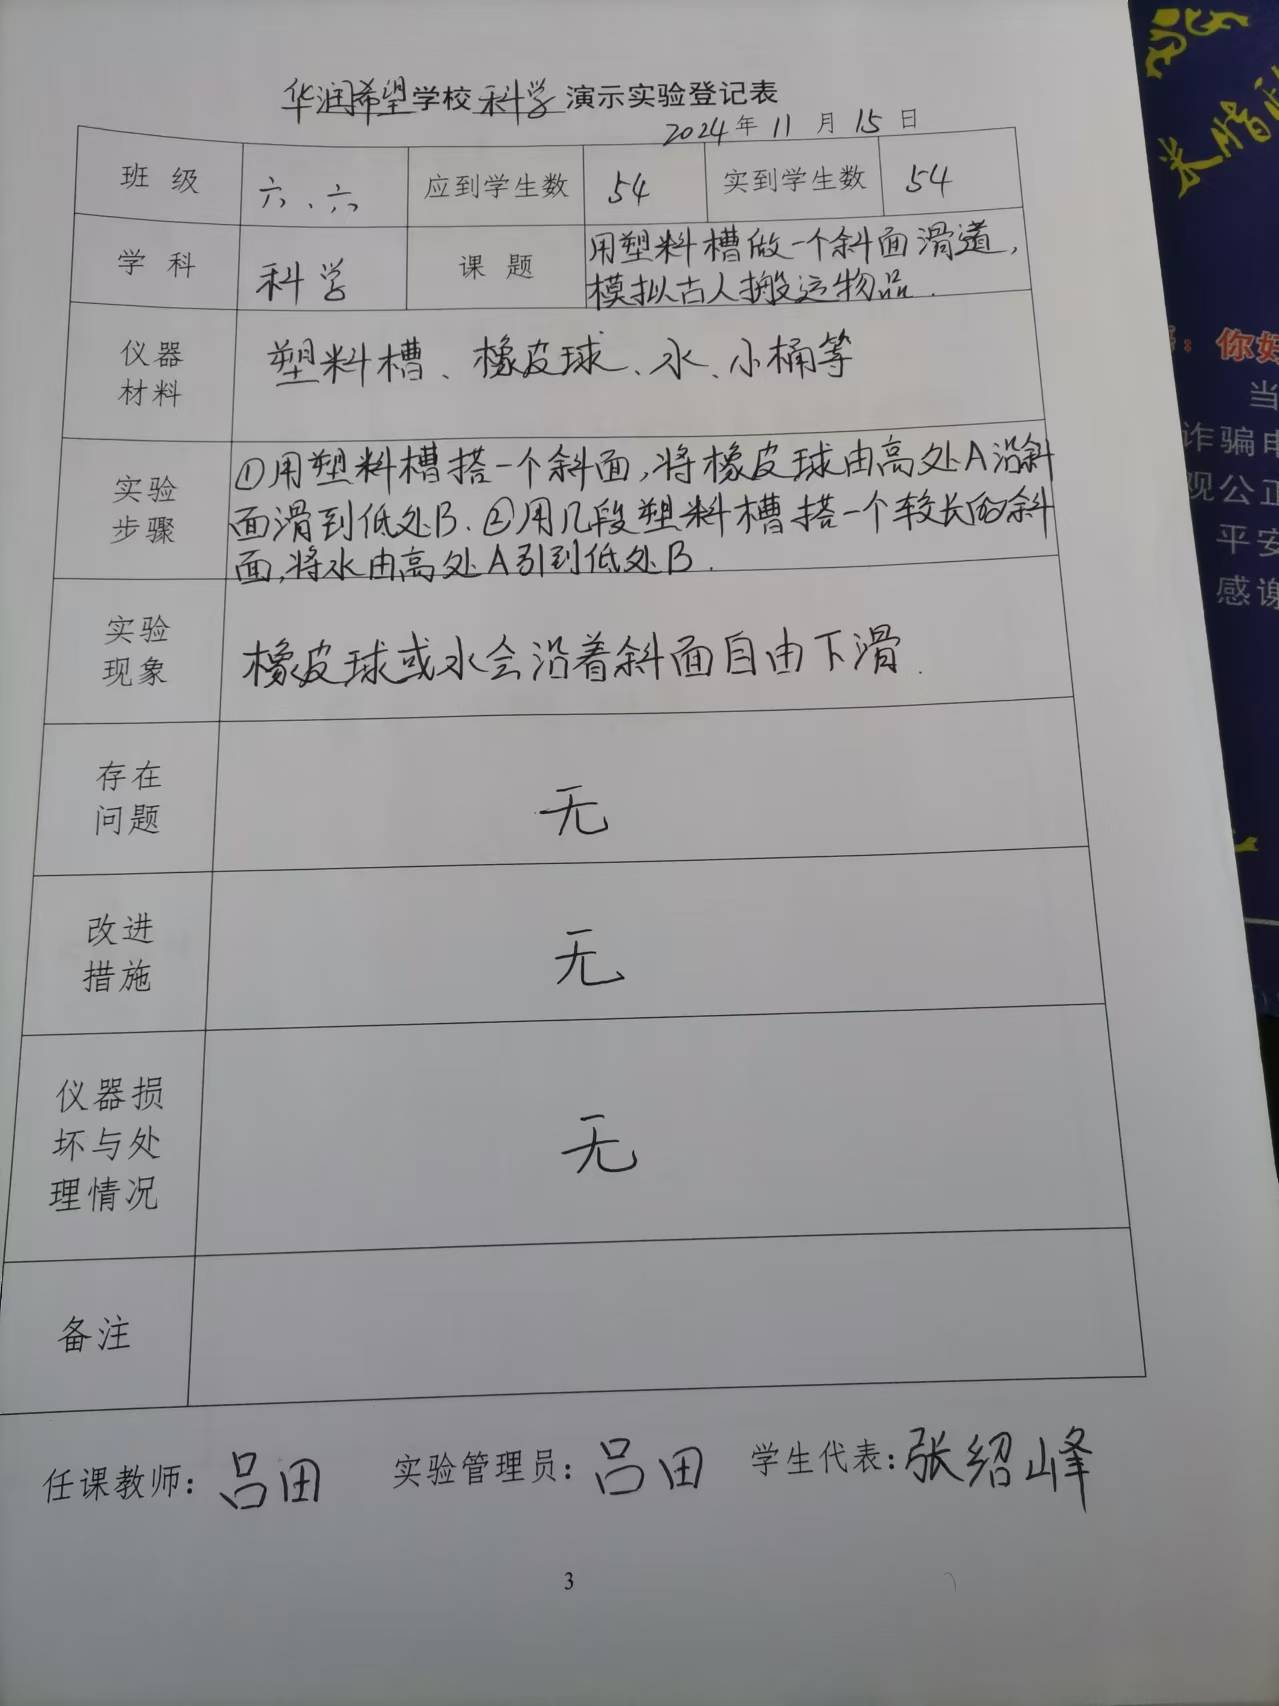 华润希望学校科学演示实验登记表
2024年11月15日
班级 六、六 应到学生数 54 实到学生数 54
学科 科学 课题 用塑料槽做一个斜面滑道,
模拟古人搬运物品.
仪器
材料
塑料槽、橡皮球、水、小桶等
实验
步骤
①用塑料槽搭一个斜面,将橡皮球由高处A沿斜
面滑到低处B.②用几段塑料槽搭一个较长的斜
面,将水由高处A引到低处B.
实验
现象
橡皮球或水会沿着斜面自由下滑.
存在
问题
无
改进
措施
无
仪器损
坏与处
理情况
无
备注
任课教师: 吕田 实验管理员: 吕田 学生代表: 张绍峰
3
: 你好
当
诈骗电
观公正
平安
感谢